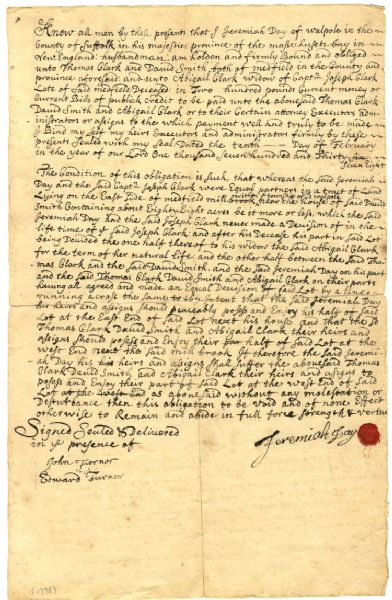 Know all men by these present that I Jeremiah Day of walpole in the
County of Suffolk in his majestys province of the massachusets bay in
New England husbandman: am holdon and firmly Bound and obliged
unto Thomas Clark and David Smith both of medfield in the County and
province aforesaid: and unto Abigail Clark widow of Capt. Joseph Clark
Late of said medfield Deceased in Two hundred pounds Current money or
Current Bills of publick Credit to be paid unto the abousaid Thomas Clark
David Smith and Abigail Clark or to their Certain attorney Executors admi-
nistrators or assigns to the which payment will and truly to be made
I Bind my self my heirs Executors and administrators firmly by these
presents Sealed with my Seal Dated the tenth Day of February
in the year of our Lord one Thousand Seven Hundred and Thirty
Seven Eight
The Condition of this obligation is Such, that whereas the said Jeremiah
Day and the Said Capt. Joseph Clark were Equal partners in a tract of Land
Lying on the East Side of medfield mill brook near the House of Said David
Smith Containing about Eighty Eight acres be it more or Less which the Said
Jeremiah Day and the Said Joseph Clark never made a Devision of in the
life time of Said Joseph Clark: and after his Decease his part in Said Lot
being Devided the one half there of to his widow the Said Abigail Clark
for the term of her natural life: and the other half between the Said Tho-
mas Clark and the Said David Smith: and the Said Jeremiah Day on his part
and the Said Thomas Clark David Smith and Abigail Clark on their parts
having all agreed and made an Equal Devision of Said Lot by a Line
running across the Same to the Intent that the said Jeremiah Day
his heirs and assigns Should peaceably posess and Enjoy his half of Said
Lot at the East End of Said Lot next his house and that the Sd
Thomas Clark David Smith and Abigail Clark their heirs and
assigns Should posess and Enjoy their half of Said Lot at the
west End next the Said mill brook If therefore the Said Jeremi-
ah Day his heirs and assigns Shall Suffer the abousaid Thomas
Clark David Smith and Abigail Clark their heirs and assigns to
posess and Enjoy their part of Said Lot at the west End of Said
Lot at the west End as abousaid without any molestation or
Desturbance then this obligation to be void and of none Effect
otherwise to Remain and abide in full force Strength & vertue
Signed Sealed & Delivered
in ye presence of
Jeremiah Day
John Turner
Edward Turner
(1738)